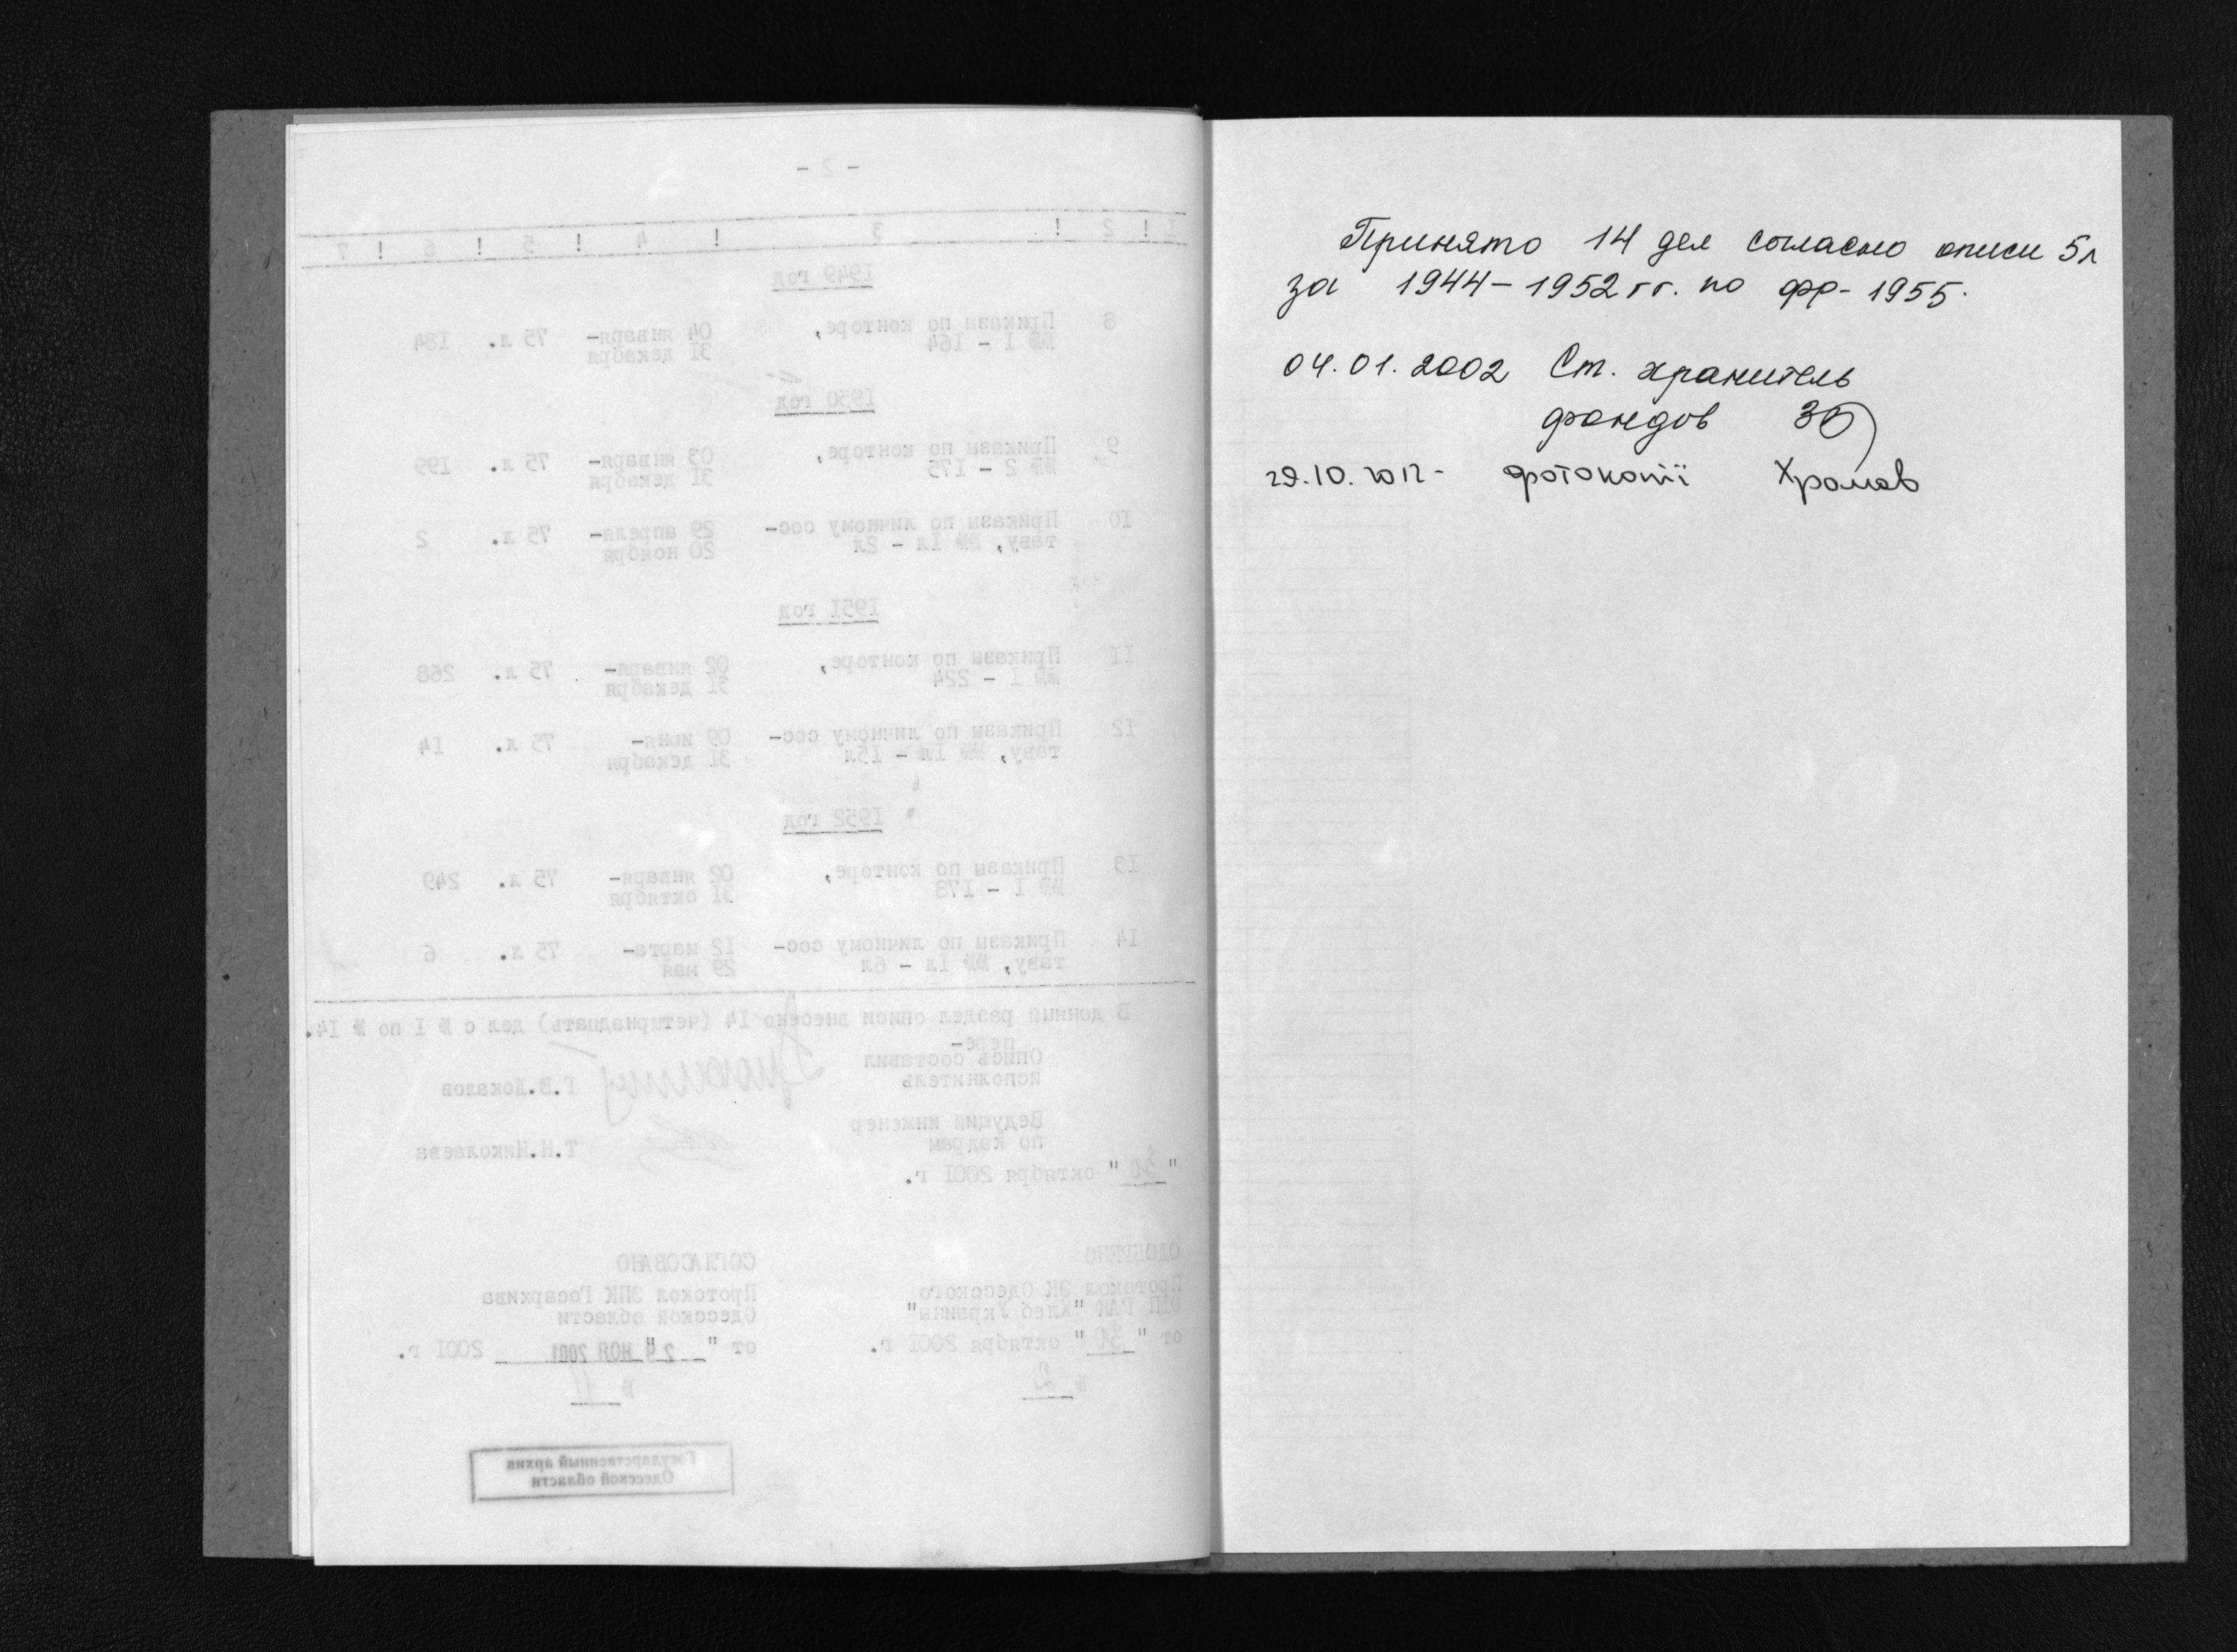 - 2 -
I ! 2 ! 3 ! 4 ! 5 ! 6 ! 7
1949 год
8 Приказы по конторе, 04 января- 75 л. 184
№№ I - 164 31 декабря
1950 год
9 Приказы по конторе, 03 января- 75 л. 199
№№ 2 - 175 31 декабря
10 Приказы по личному сос- 29 апреля- 75 л. 2
таву, №№ 1л - 2л 20 ноября
1951 год
11 Приказы по конторе, 02 января- 75 л. 268
№№ I - 224 31 декабря
12 Приказы по личному сос- 09 июня- 75 л. 14
таву, №№ 1л - 15л 31 декабря
1952 год
13 Приказы по конторе, 02 января- 75 л. 249
№№ I - 178 31 октября
14 Приказы по личному сос- 12 марта- 75 л. 6
таву, №№ 1л - 6л 29 мая
В данный раздел описи внесено 14 (четырнадцать) дел с № I по № 14.
пере-
Опись составил
исполнитель Г.В.
Ведущий инженер
по кадрам Т.Н.Николаева
"30" октября 2001 г.
ОДОБРЕНО СОГЛАСОВАНО
Протокол ЭК Одесского Протокол ЭПК Госархива
ГАК "Хлеб Украины" Одесской области
от "30" октября 2001 г. от " НОЯ 2001 2001 г.
№ 2 №
Государственный архив
Одесской области
Принято 14 дел согласно описи 5л
за 1944-1952 гг. по фр-1955.
04.01.2002 Ст. хранитель
фондов
29.10.2012 - фотокопії